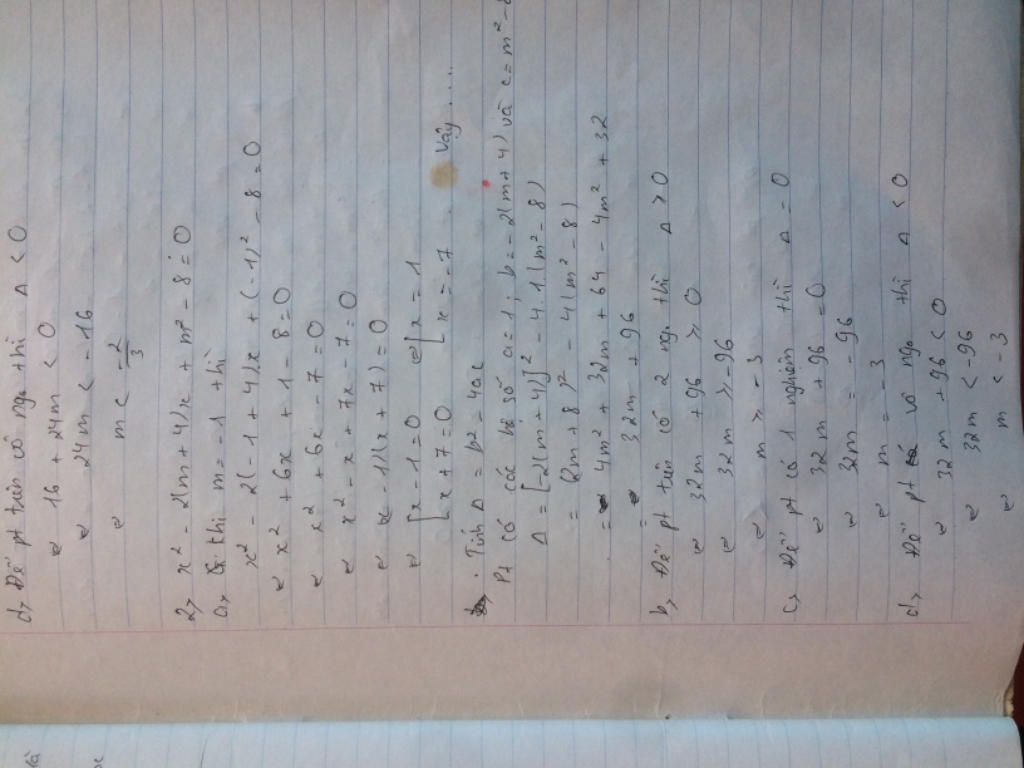 d, Để pt trên vô ng0 thì Δ < 0
16 + 24m < 0
24m < -16
m < -2/3
2, x² - 2(m+4)x + m² - 8 = 0
a, thì m = -1 thì
x² - 2(-1+4)x + (-1)² - 8 = 0
x² + 6x + 1 - 8 = 0
x² + 6x - 7 = 0
x² - x + 7x - 7 = 0
(x - 1)(x + 7) = 0
[x - 1 = 0 [x = 1
[x + 7 = 0 [x = -7 Vậy....
. Tính Δ = b² - 4ac
Pt có các hệ số a = 1; b = -2(m+4) và c = m² - 8
Δ = [-2(m+4)]² - 4.1(m² - 8)
= (2m + 8)² - 4(m² - 8)
= 4m² + 32m + 64 - 4m² + 32
= 32m + 96
b, Để pt trên có 2 ng0 thì Δ > 0
32m + 96 > 0
32m > -96
m > -3
c, Để pt có 1 nghiệm thì Δ = 0
32m + 96 = 0
32m = -96
m = -3
d, Để pt vô ng0 thì Δ < 0
32m + 96 < 0
32m < -96
m < -3